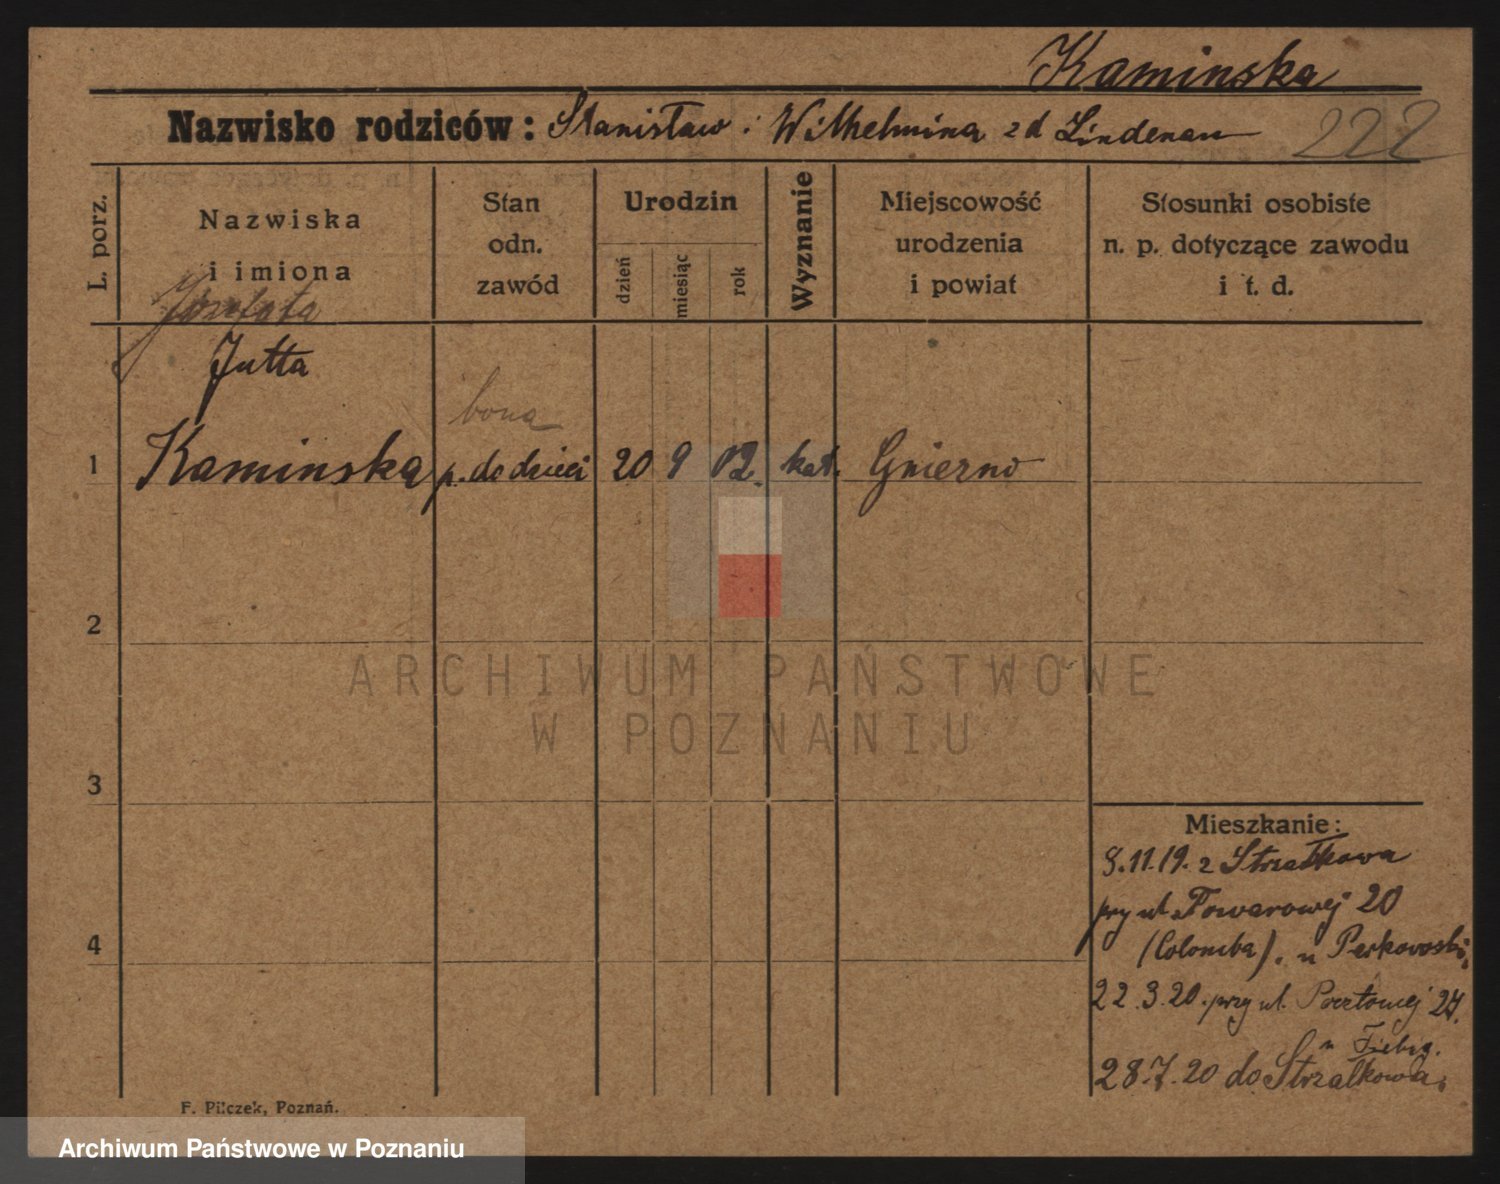 Kaminska
Nazwisko rodziców: Stanisław i Wilhelmina zd Lindenau
222
L. porz.
Nazwiska
i imiona
Stan
odn.
zawód
Urodzin
dzień
miesiąc
rok
Wyznanie
Miejscowość
urodzenia
i powiat
Stosunki osobiste
n. p. dotyczące zawodu
i t. d.
Jutta
bona
1 Kaminska p. do dzieci 20 9 02. kat. Gniezno
2
3
4
Mieszkanie:
8.11.19. z Strzałkowa
przy ul. Towarowej 20
(Colomba). u
22.3.20. przy ul. Pocztowej 27.
u
28.7.20 do Strzałkowa.
F. Pilczek, Poznań.
ARCHIWUM PAŃSTWOWE
W POZNANIU
Archiwum Państwowe w Poznaniu